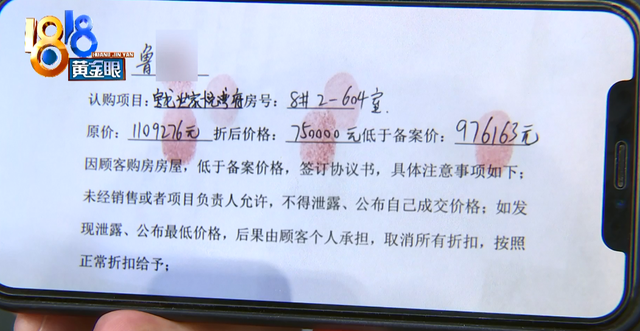 1818
HUANG JIN YAN
黄金眼
鲁
认购项目：宝龙世家悦澜府房号：8# 2-604室
原价：1109276元 折后价格：750000元低于备案价：976163元
因顾客购房房屋，低于备案价格，签订协议书，具体注意事项如下：
未经销售或者项目负责人允许，不得泄露、公布自己成交价格；如发
现泄露、公布最低价格，后果由顾客个人承担，取消所有折扣，按照
正常折扣给予；